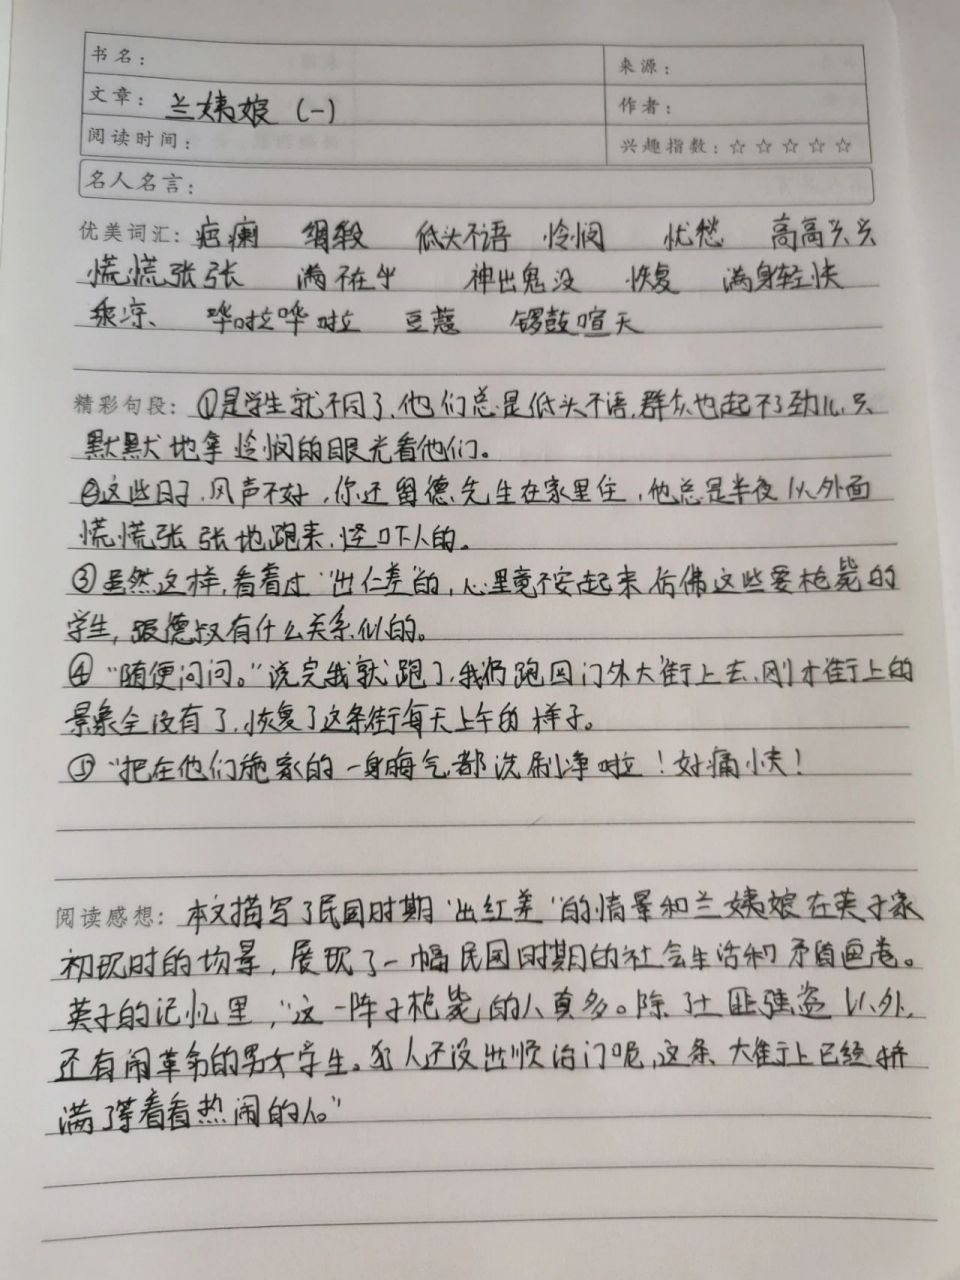 书名： 来源：
文章：兰姨娘（一） 作者：
阅读时间： 兴趣指数：☆☆☆☆☆
名人名言：
优美词汇：疤瘌 绸缎 低头不语 怜悯 忧愁 高高兴兴
慌慌张张 满不在乎 神出鬼没 恢复 满身轻快
乘凉、 哗啦哗啦 豆蔻 锣鼓喧天
精彩句段：①是学生就不同了，他们总是低头不语，群众也起不了劲儿，只
默默地拿怜悯的眼光看他们。
②这些日子，风声不好，你还留德先生在家里住，他总是半夜从外面
慌慌张张地跑来，怪吓人的。
③虽然这样，看看过“出仁差”的，心里竟不安起来，仿佛这些要枪毙的
学生，跟德叔有什么关系似的。
④“随便问问。”说完我就跑了，我仍跑回门外大街上去，刚才街上的
景象全没有了，恢复了这条街每天上午的样子。
⑤“把在他们施家的一身晦气都洗刷净啦！好痛快！
阅读感想：本文描写了民国时期“出红差”的情景和兰姨娘在英子家
初现时的场景，展现了一幅民国时期的社会生活和矛盾画卷。
英子的记忆里，“这一阵子枪毙的人真多。除了土匪强盗以外，
还有闹革命的男女学生。犯人还没出顺治门呢，这条大街上已经挤
满了等着看热闹的人。”